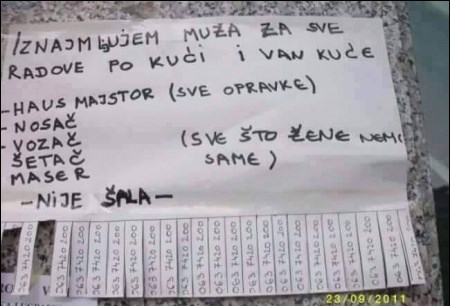 IZNAJMLJUJEM MUŽA ZA SVE
RADOVE PO KUĆI I VAN KUĆE
-HAUS MAJSTOR (SVE OPRAVKE)
-NOSAČ
-VOZAČ (SVE ŠTO ŽENE NEMO
ŠETAČ SAME)
MASER
-NIJE ŠALA-
063 7420 200
063 7420 200
063 7420 200
063 7420 200
063 7420 200
063 7420 200
063 7420 200
063 7420 200
063 7420 200
063 7420 200
063 7420 200
063 7420 200
063 7420 200
063 7420 200
063 7420 200
063 7420 200
063 7420 200
23/09/2011